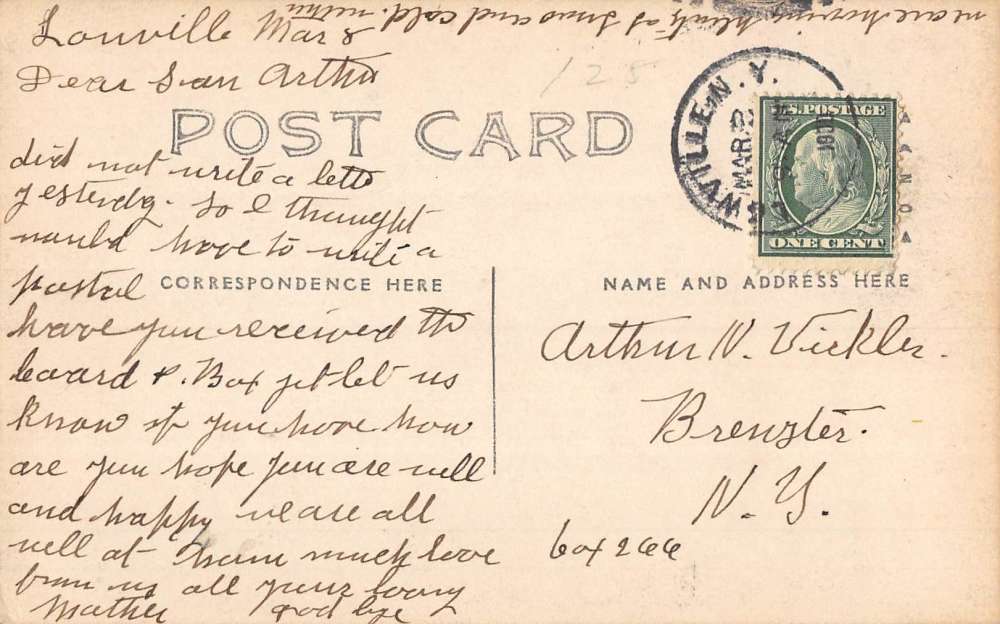 we are having plenty of snow and cold
Lowville Mar 8
Dear Son Arthur
125
POST CARD
WVILLE, N.Y.
MAR
U.S. POSTAGE
ONE CENT
did not write a letter
yesterdy. So I thought
would have to write a
postal
CORRESPONDENCE HERE
NAME AND ADDRESS HERE
have you received the
board & Box yet let us
know if you have how
are you hope you are well
and happy we are all
well at home much love
from us all your loving
Mother good bye
Arthur N. Vickler.
Brewster.
N. Y.
box 266